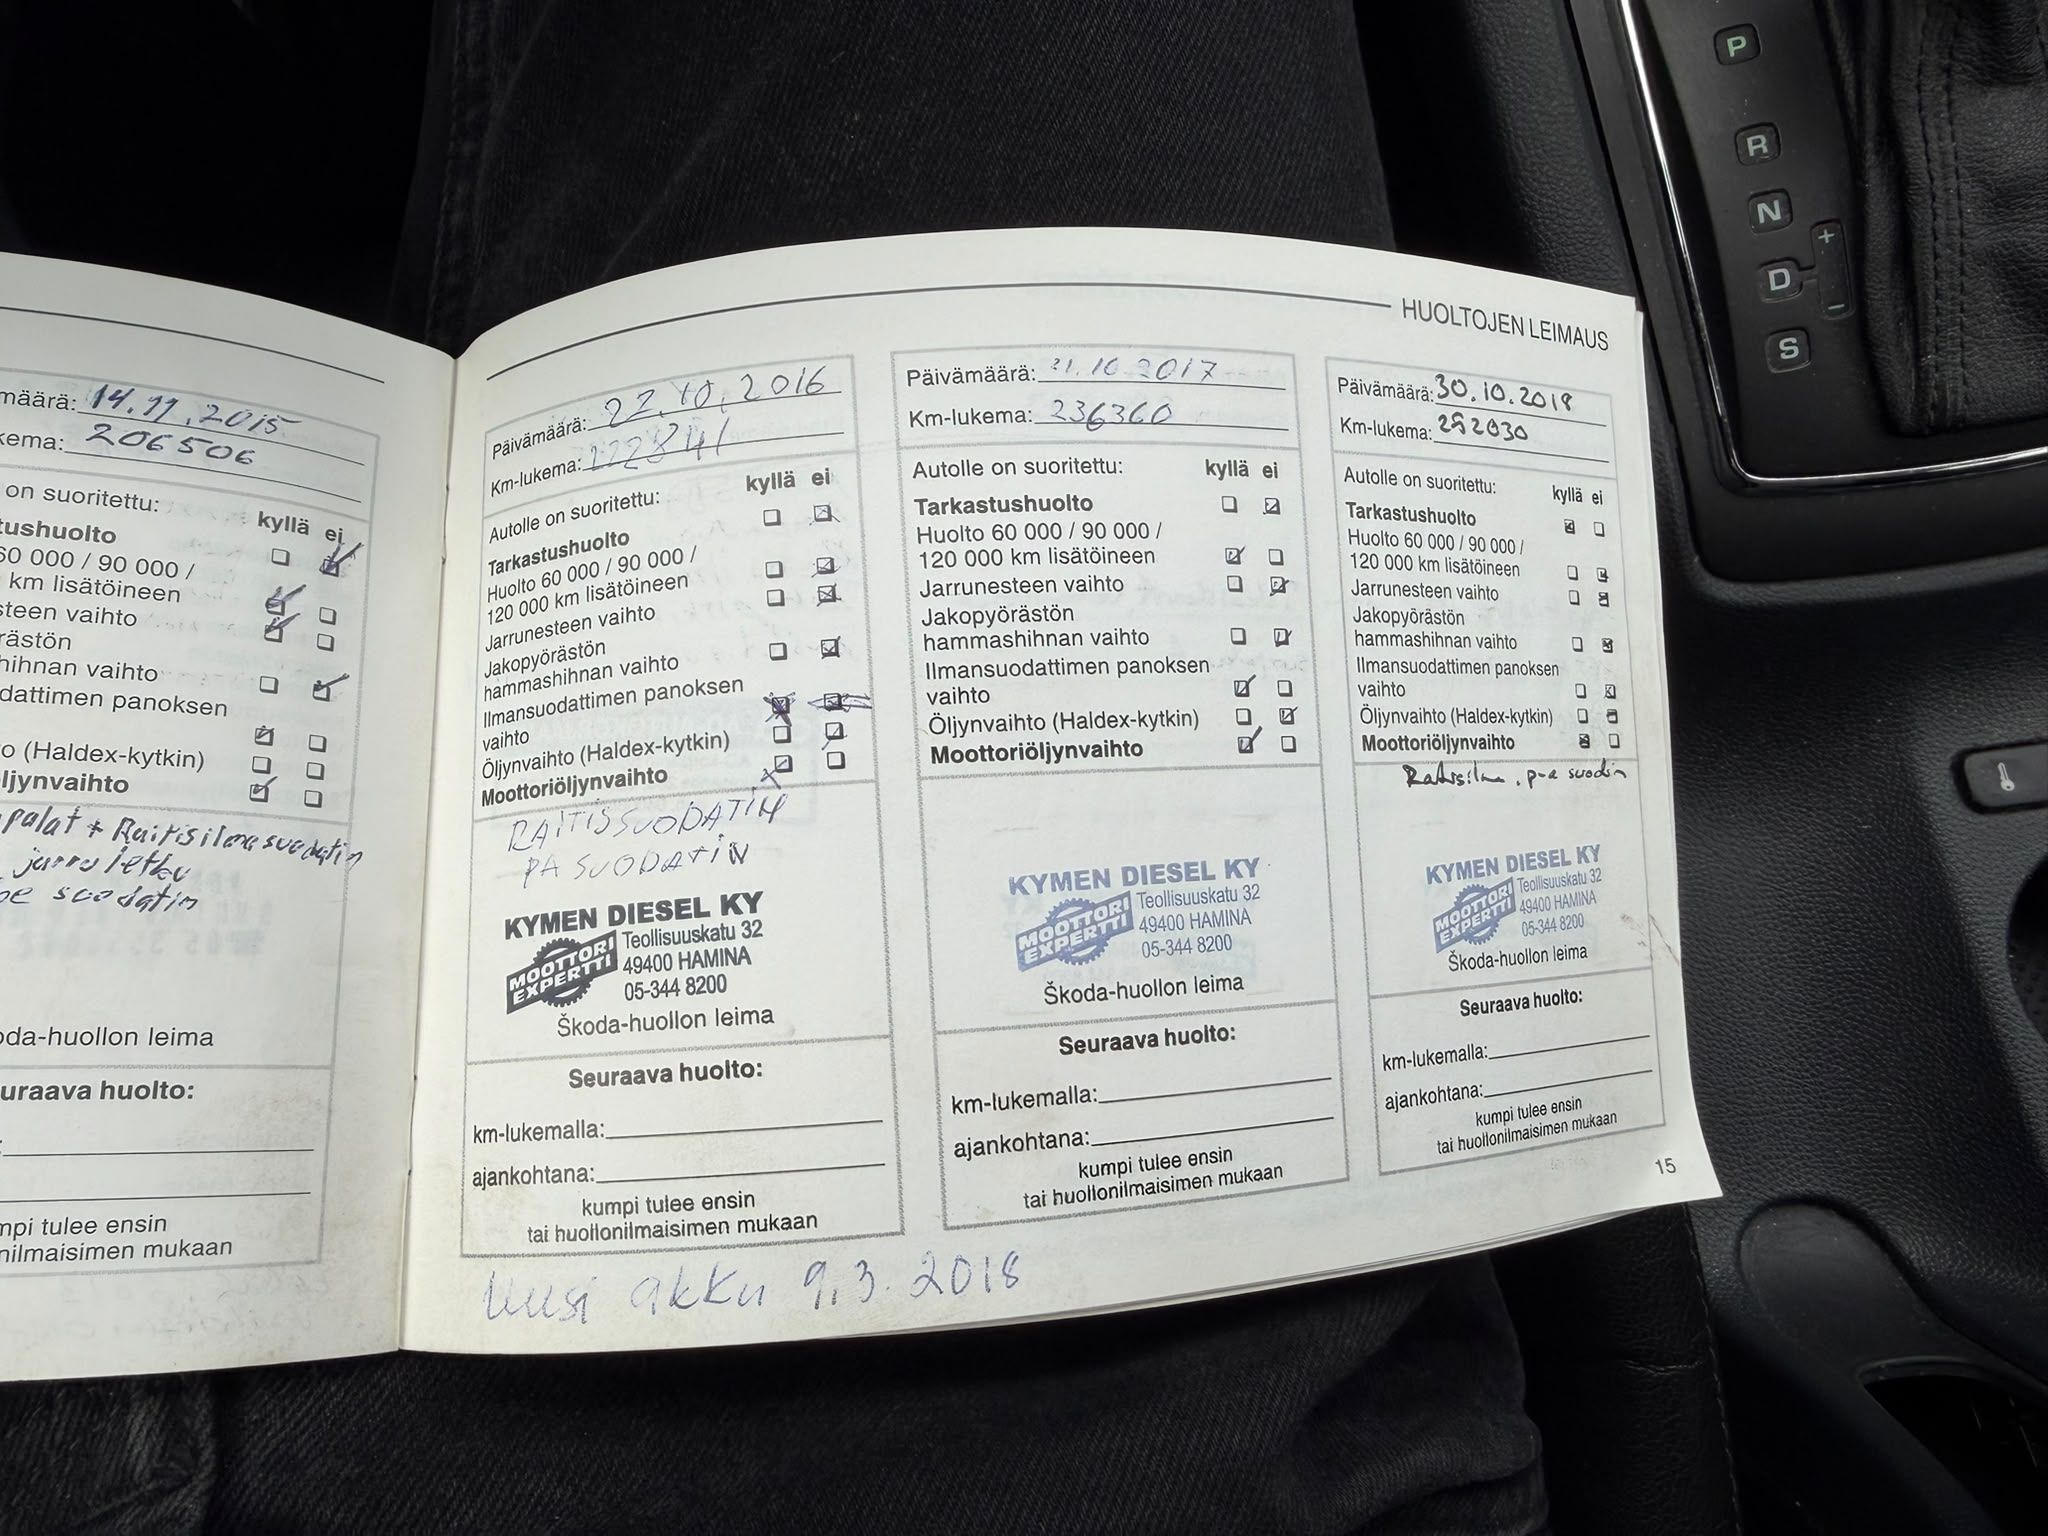 HUOLTOJEN LEIMAUS
määrä: 14.11.2015
kema: 206506
on suoritettu:
kyllä ei
tushuolto
60 000 / 90 000 /
km lisätöineen
steen vaihto
rästön
hihnan vaihto
dattimen panoksen
to (Haldex-kytkin)
ljynvaihto
palat + Raitisilmasuodatin
jarruletku
suodatin
oda-huollon leima
uraava huolto:
mpi tulee ensin
nilmaisimen mukaan
Päivämäärä: 22.10.2016
Km-lukema: 222841
Autolle on suoritettu:
kyllä ei
Tarkastushuolto
Huolto 60 000 / 90 000 /
120 000 km lisätöineen
Jarrunesteen vaihto
Jakopyörästön
hammashihnan vaihto
Ilmansuodattimen panoksen
vaihto
Öljynvaihto (Haldex-kytkin)
Moottoriöljynvaihto
RAITISSUODATIN
PA SUODATIN
KYMEN DIESEL KY
MOOTTORI
EXPERTTI
Teollisuuskatu 32
49400 HAMINA
05-344 8200
Škoda-huollon leima
Seuraava huolto:
km-lukemalla:
ajankohtana:
kumpi tulee ensin
tai huollonilmaisimen mukaan
Päivämäärä: 31.10.2017
Km-lukema: 236360
Autolle on suoritettu:
kyllä ei
Tarkastushuolto
Huolto 60 000 / 90 000 /
120 000 km lisätöineen
Jarrunesteen vaihto
Jakopyörästön
hammashihnan vaihto
Ilmansuodattimen panoksen
vaihto
Öljynvaihto (Haldex-kytkin)
Moottoriöljynvaihto
KYMEN DIESEL KY
MOOTTORI
EXPERTTI
Teollisuuskatu 32
49400 HAMINA
05-344 8200
Škoda-huollon leima
Seuraava huolto:
km-lukemalla:
ajankohtana:
kumpi tulee ensin
tai huollonilmaisimen mukaan
Päivämäärä: 30.10.2018
Km-lukema: 252030
Autolle on suoritettu:
kyllä ei
Tarkastushuolto
Huolto 60 000 / 90 000 /
120 000 km lisätöineen
Jarrunesteen vaihto
Jakopyörästön
hammashihnan vaihto
Ilmansuodattimen panoksen
vaihto
Öljynvaihto (Haldex-kytkin)
Moottoriöljynvaihto
Raitisilma, p-a suodin
KYMEN DIESEL KY
MOOTTORI
EXPERTTI
Teollisuuskatu 32
49400 HAMINA
05-344 8200
Škoda-huollon leima
Seuraava huolto:
km-lukemalla:
ajankohtana:
kumpi tulee ensin
tai huollonilmaisimen mukaan
15
Uusi akku 9.3.2018
P
R
N
D
+
-
S